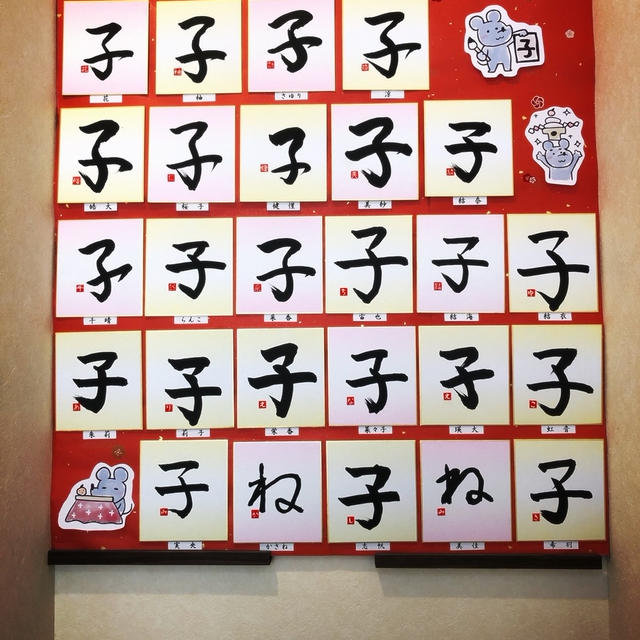 子 子 子 子 子
花 柚 さゆり 淳
子 子 子 子 子
皓大 桜子 健俚 美紗 結奈
子 子 子 子 子 子
千晴 らんこ 茉杏 宙也 結海 結衣
子 子 子 子 子 子
朱莉 莉子 茉杏 菜々子 瑛大 虹音
子 ね 子 ね 子
実央 かさね 志帆 美佳 希羽